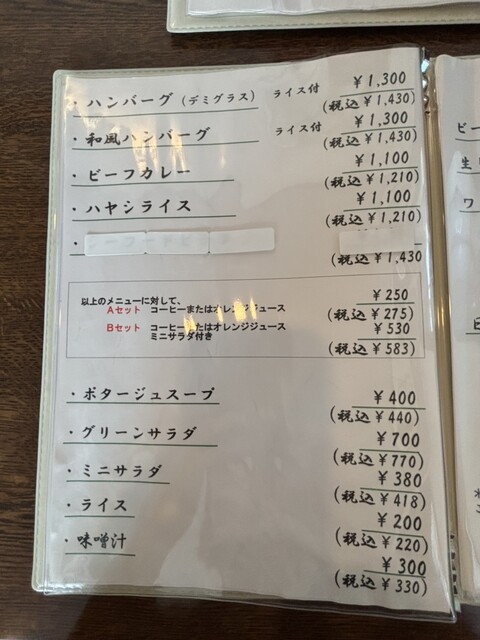 ・ハンバーグ（デミグラス） ライス付 ￥1,300
(税込￥1,430)
・和風ハンバーグ ライス付 ￥1,300
(税込￥1,430)
・ビーフカレー ￥1,100
(税込￥1,210)
・ハヤシライス ￥1,100
(税込￥1,210)
・
(税込￥1,430
以上のメニューに対して、
Aセット コーヒーまたはオレンジジュース ￥250
(税込￥275)
Bセット コーヒーまたはオレンジジュース ￥530
ミニサラダ付き
(税込￥583)
・ポタージュスープ ￥400
(税込￥440)
・グリーンサラダ ￥700
(税込￥770)
・ミニサラダ ￥380
(税込￥418)
・ライス ￥200
(税込￥220)
・味噌汁 ￥300
(税込￥330)
ビー
生
ワ